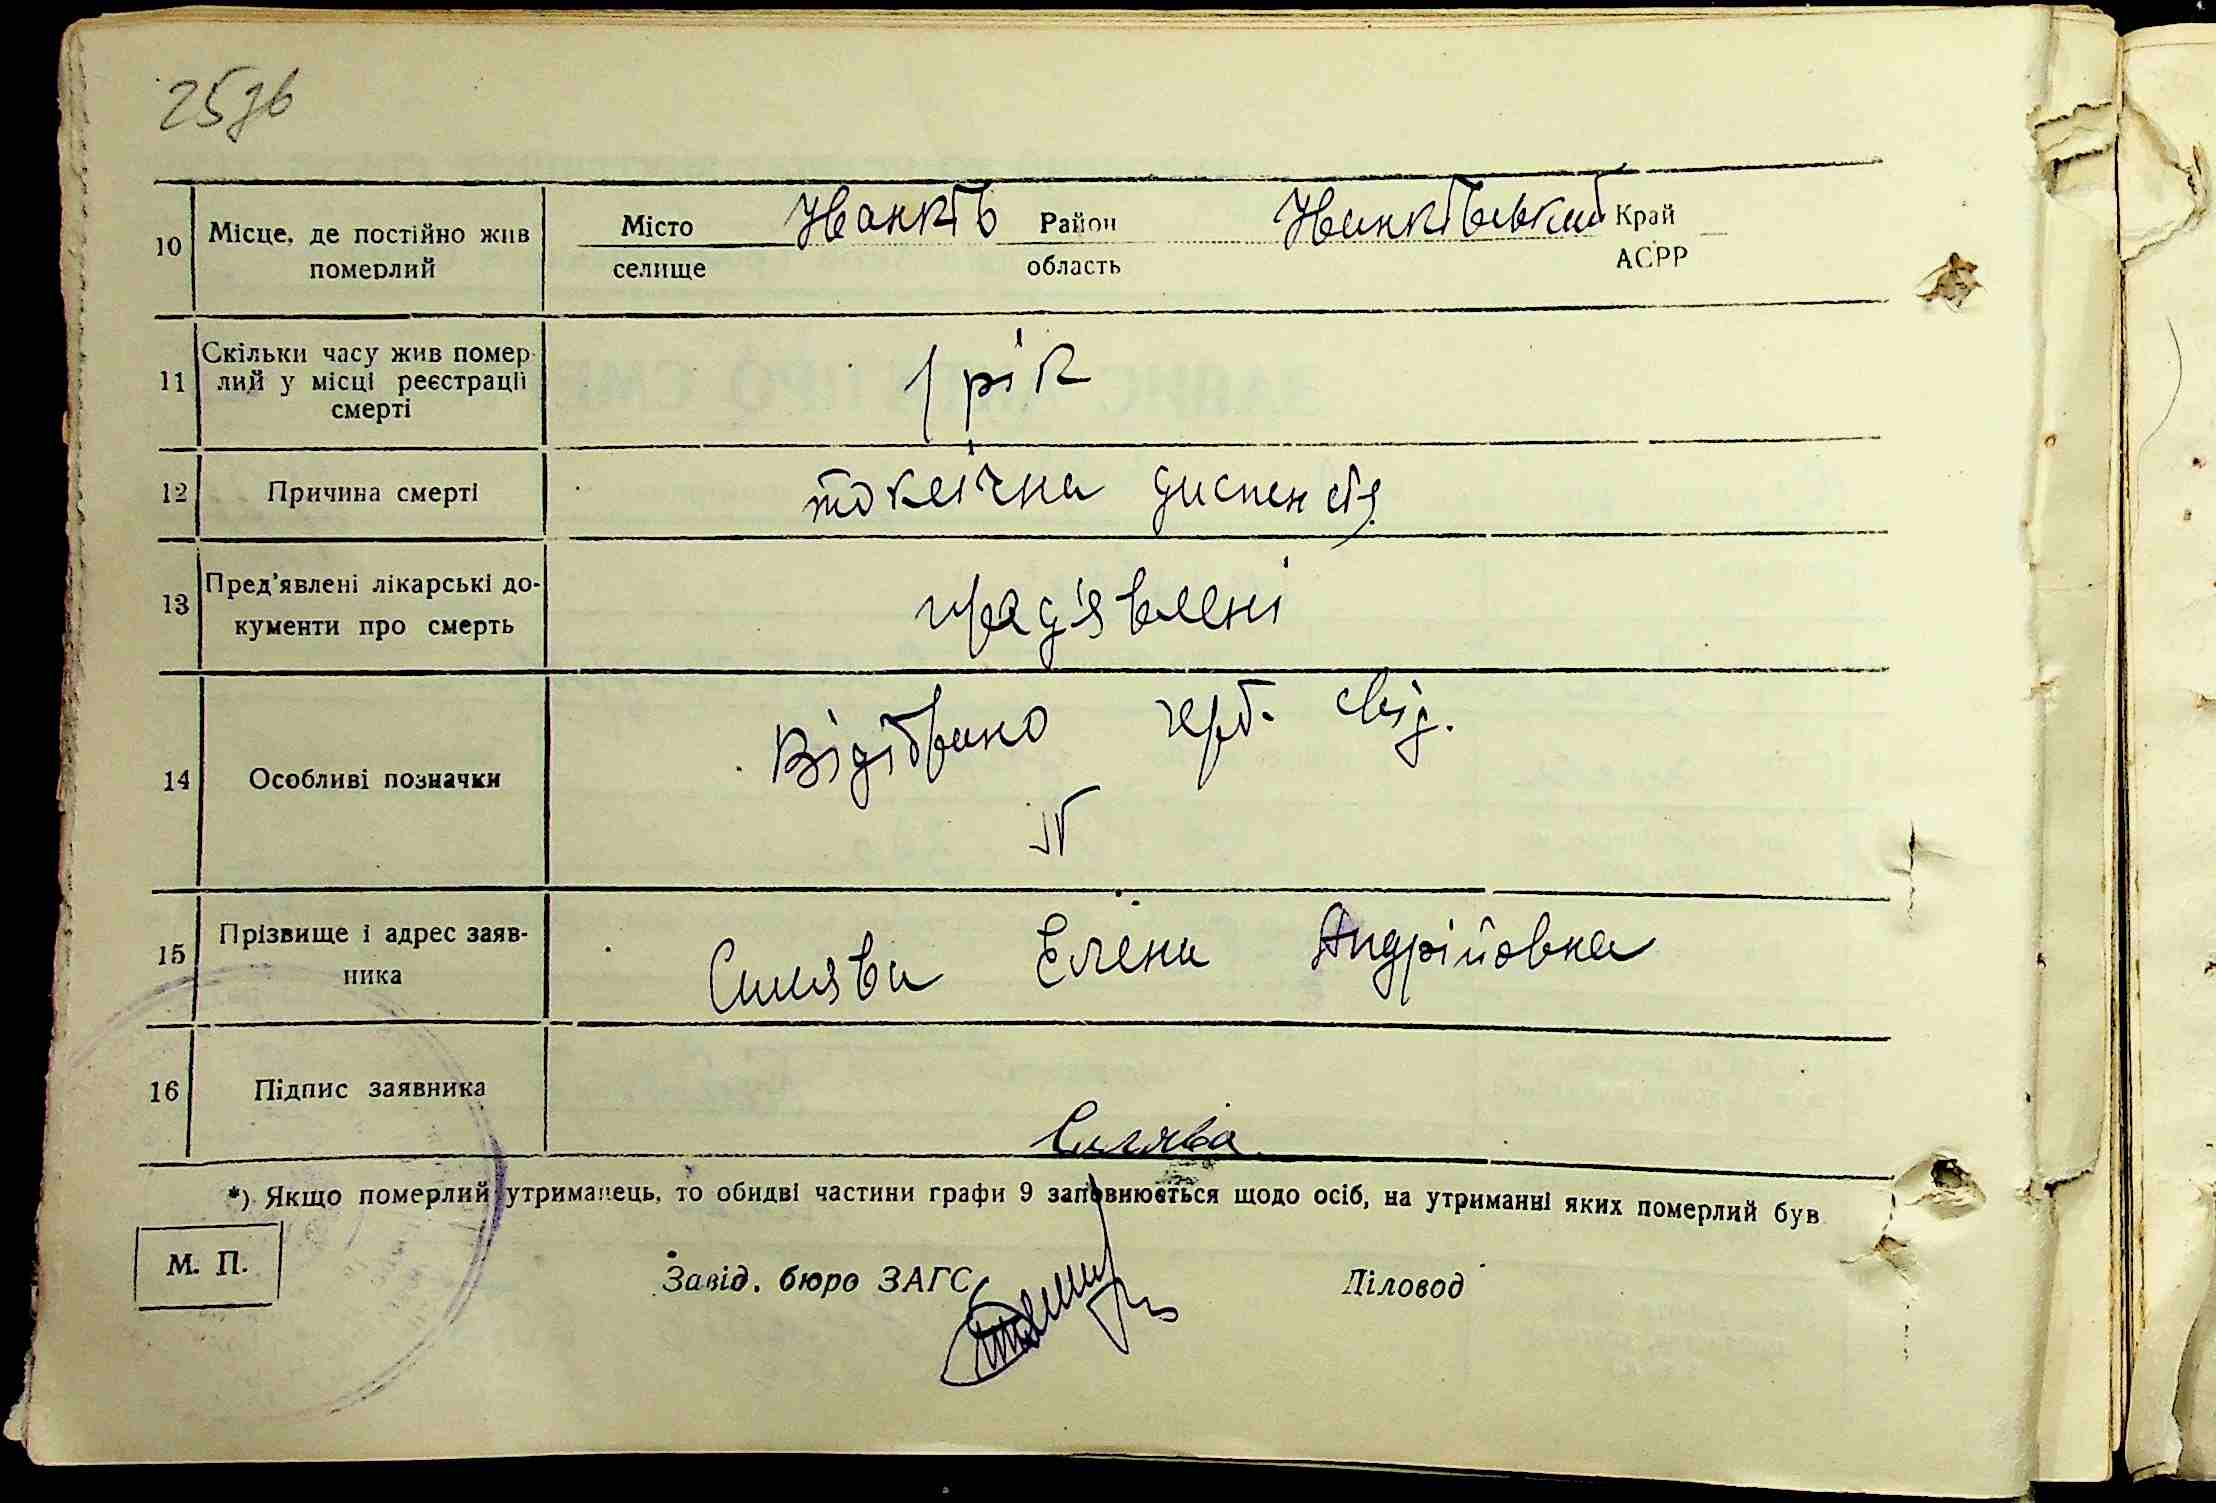 25зв
10 Місце, де постійно жив померлий Місто селище Іванків Район область Іванківський Край АСРР
11 Скільки часу жив помер-
лий у місці реєстрації
смерті 1 рік
12 Причина смерті токсична диспенсія
13 Пред'явлені лікарські до-
кументи про смерть предявлені
14 Особливі позначки Відібрано герб. свід.
15 Прізвище і адрес заяв-
ника Силява Елена Андрійовна
16 Підпис заявника Силява
*) Якщо померлий утриманець, то обидві частини графи 9 заповнюється щодо осіб, на утриманні яких померлий був
М. П. Завід. бюро ЗАГС Діловод